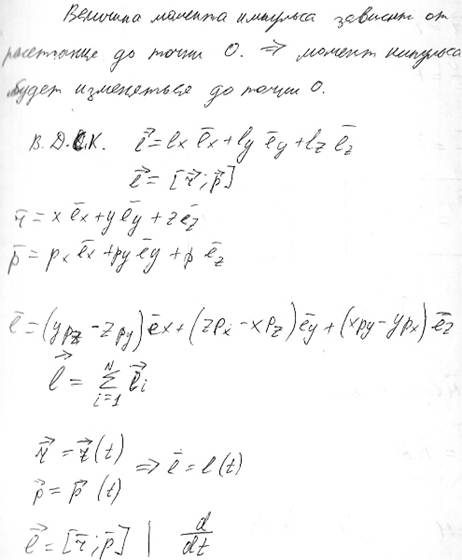 Величина момента импульса зависит от
расстояние до точки O. ⇒ момент импульса
будет изменяться до точки O.
В Д.С.К. l⃗ = lx ēx + ly ēy + lz ēz
l⃗ = [r⃗; p⃗]
r̄ = x ēx + y ēy + z ēz
p̄ = px ēx + py ēy + p ēz
l̄ = (ypz - zpy) ēx + (zpx - xpz) ēy + (xpy - ypx) ēz
l⃗ = Σ_{i=1}^{N} l⃗i
r⃗ = r⃗(t)
⇒ l̄ = l(t)
p⃗ = p⃗(t)
l⃗ = [r⃗; p⃗] | d/dt